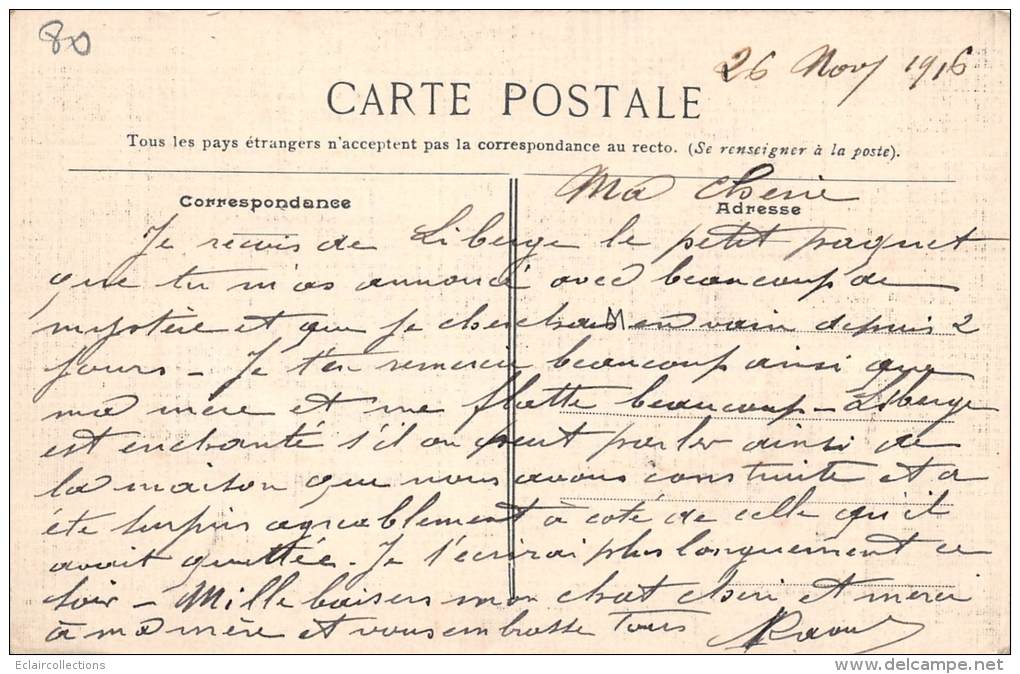 80
26 Nov 1916
CARTE POSTALE
Tous les pays étrangers n'acceptent pas la correspondance au recto. (Se renseigner à la poste).
Ma cherie
Correspondance
Adresse
Je recois de Liberge le petit paquet
que tu m'as annoncé avec beaucoup de
mystère et que je cherchais en vain depuis 2
M
jours - Je t'en remercie beaucoup ainsi que
ma mère et me flatte beaucoup - Liberge
est enchanté s'il on peut parler ainsi de
la maison que nous avons construite et a
été surpris agreablement à coté de celle qu'il
avait quittée. Je t'écrirai plus longuement ce
soir - Mille baisers mon chat cheri et merci
à ma mère et vous embrasse Tous Raoul
Eclaircollections
www.delcampe.net